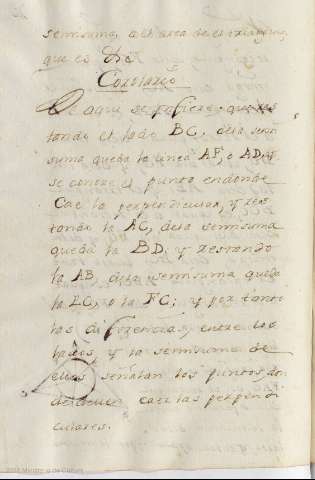 semisuma, al area de el triangulo,
que es
Corolario
De aqui se refiere que res
tando el lado BC, dela sem
suma queda la linea AF, o AD, y
se conoce el punto endonde
Cae la perpendicular, y res
tando la AC, dela semisuma
queda la BD. y restando
la AB dela semisuma queda
la EC, o la FC; y por tanto
las diferencias, entre los
lados, y la semisuma de
ellos señalan los puntos, do
deven caer las perpendi
culares.